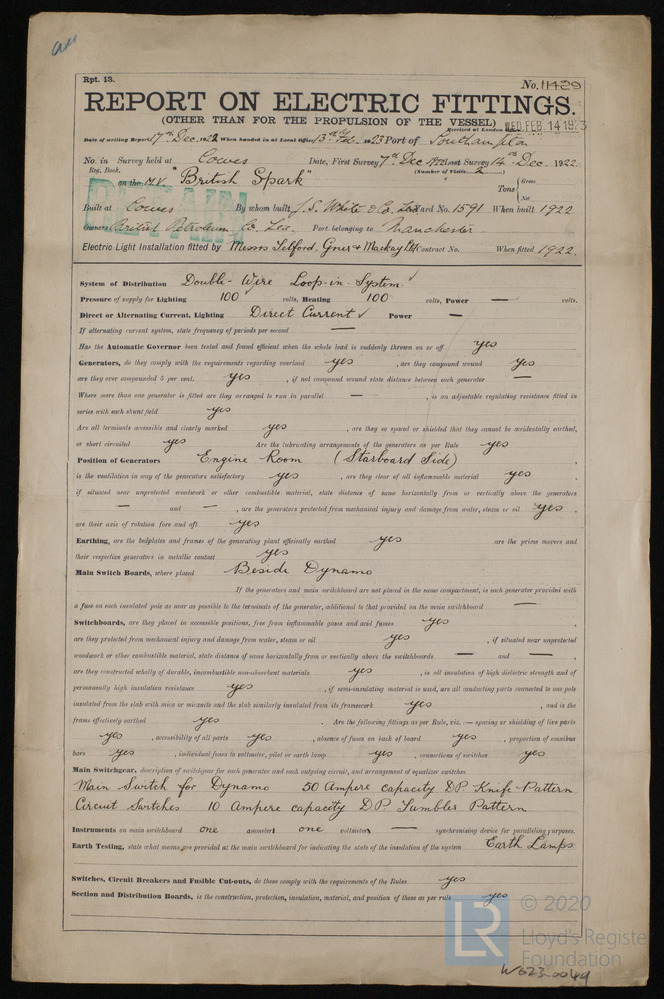 Rpt. 13.
No. 11429
REPORT ON ELECTRIC FITTINGS.
(OTHER THAN FOR THE PROPULSION OF THE VESSEL)
Received at London Office WED. FEB. 14 1923
Date of writing Report 17th Dec. 1922 When handed in at Local Office 13th Feb. 1923 Port of Southampton
No. in Survey held at Cowes Date, First Survey 7th Dec 1922 Last Survey 14th Dec. 1922
Reg. Book. (Number of Visits 2)
on the M.V. "British Spark" Tons { Gross
Net
Built at Cowes By whom built J. S. White & Co. Ltd Yard No. 1591 When built 1922
Owners British Petroleum Co. Ltd. Port belonging to Manchester
Electric Light Installation fitted by Messrs Telford, Grier & Mackay Ltd Contract No. When fitted 1922.
System of Distribution Double-Wire Loop-in-System ✓
Pressure of supply for Lighting 100 volts, Heating 100 volts, Power — volts.
Direct or Alternating Current, Lighting Direct Current ✓ Power —
If alternating current system, state frequency of periods per second —
Has the Automatic Governor been tested and found efficient when the whole load is suddenly thrown on or off yes
Generators, do they comply with the requirements regarding overload yes , are they compound wound yes
are they over compounded 5 per cent. yes , if not compound wound state distance between each generator —
Where more than one generator is fitted are they arranged to run in parallel — , is an adjustable regulating resistance fitted in
series with each shunt field yes
Are all terminals accessible and clearly marked yes , are they so spaced or shielded that they cannot be accidentally earthed,
or short circuited yes Are the lubricating arrangements of the generators as per Rule yes
Position of Generators Engine Room (Starboard Side)
is the ventilation in way of the generators satisfactory yes , are they clear of all inflammable material yes
if situated near unprotected woodwork or other combustible material, state distance of same horizontally from or vertically above the generators
— and — , are the generators protected from mechanical injury and damage from water, steam or oil yes
are their axis of rotation fore and aft yes
Earthing, are the bedplates and frames of the generating plant efficiently earthed yes are the prime movers and
their respective generators in metallic contact yes
Main Switch Boards, where placed Beside Dynamo
If the generators and main switchboard are not placed in the same compartment, is each generator provided with
a fuse on each insulated pole as near as possible to the terminals of the generator, additional to that provided on the main switchboard —
Switchboards, are they placed in accessible positions, free from inflammable gases and acid fumes yes
are they protected from mechanical injury and damage from water, steam or oil yes , if situated near unprotected
woodwork or other combustible material, state distance of same horizontally from or vertically above the switchboards — and —
are they constructed wholly of durable, incombustible non-absorbent materials yes , is all insulation of high dielectric strength and of
permanently high insulation resistance yes , if semi-insulating material is used, are all conducting parts connected to one pole
insulated from the slab with mica or micanite and the slab similarly insulated from its framework yes , and is the
frame effectively earthed yes Are the following fittings as per Rule, viz.:— spacing or shielding of live parts
yes , accessibility of all parts yes , absence of fuses on back of board yes , proportion of omnibus
bars yes , individual fuses to voltmeter, pilot or earth lamp yes , connections of switches yes
Main Switchgear, description of switchgear for each generator and each outgoing circuit, and arrangement of equalizer switches
Main Switch for Dynamo 50 Ampere capacity D.P. Knife-Pattern
Circuit Switches 10 Ampere capacity D.P. Tumbler Pattern
Instruments on main switchboard one ammeters one voltmeters — synchronising device for paralleling purposes.
Earth Testing, state what means are provided at the main switchboard for indicating the state of the insulation of the system Earth Lamps
Switches, Circuit Breakers and Fusible Cut-outs, do these comply with the requirements of the Rules yes
Section and Distribution Boards, is the construction, protection, insulation, material, and position of these as per rule yes
LR
© 2020
Lloyd's Register
Foundation
W623-0049